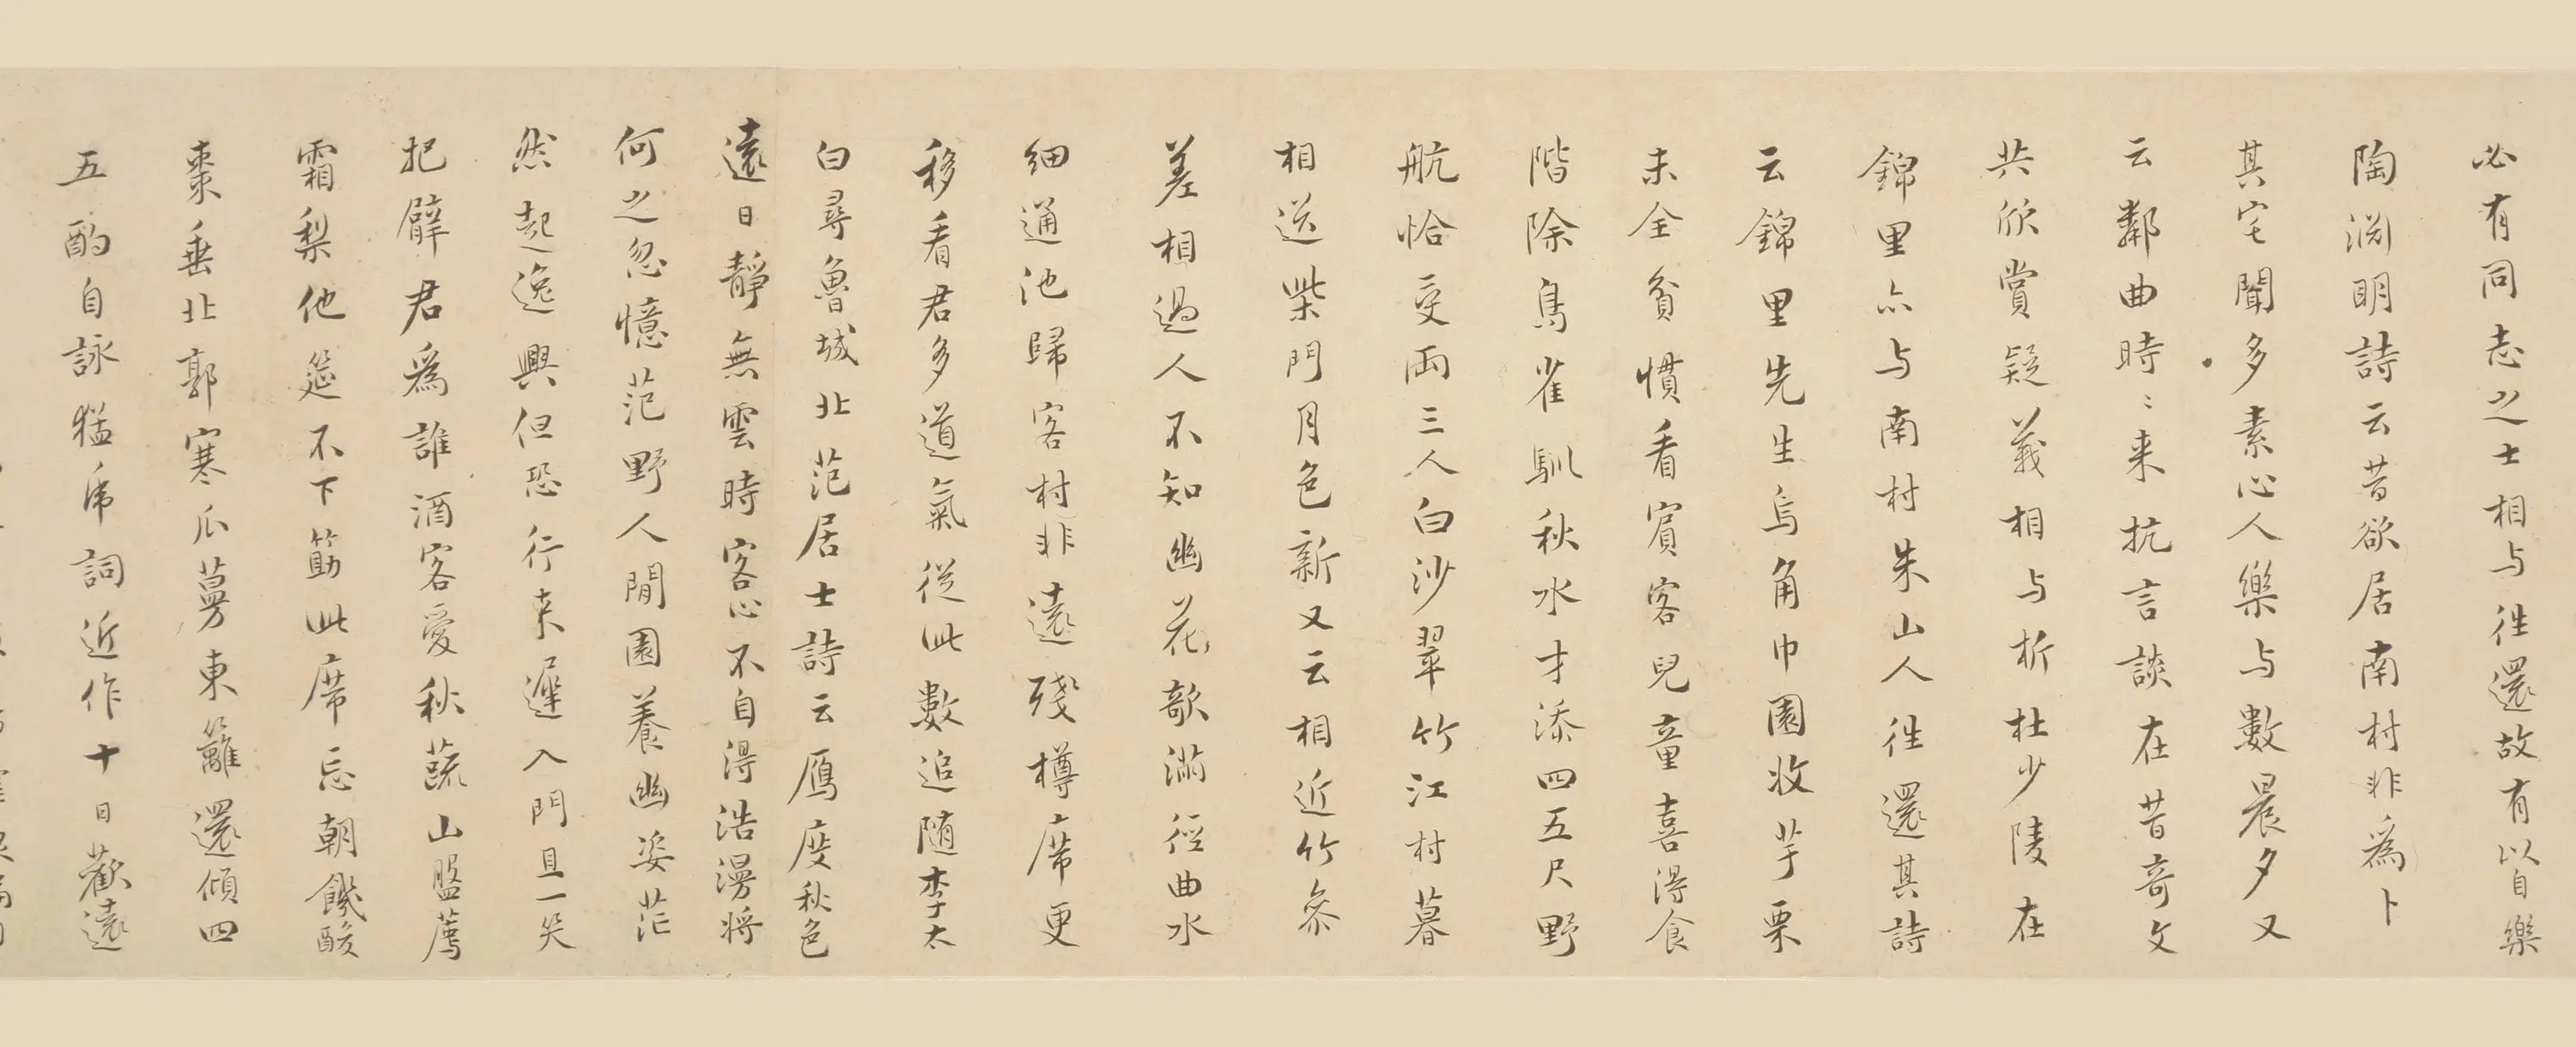 必有同志之士相与往還故有以自樂
陶淵明詩云昔欲居南村非爲卜
其宅聞多素心人樂与數晨夕又
云鄰曲時〻来抗言談在昔奇文
共欣賞疑義相与析杜少陵在
錦里亦与南村朱山人往還其詩
云錦里先生烏角巾園收芋栗
未全貧慣看賓客兒童喜得食
階除鳥雀馴秋水才添四五尺野
航恰受兩三人白沙翠竹江村暮
相送柴門月色新又云相近竹叅
差相過人不知幽花欹滿徑曲水
細通池歸客村非遠殘樽席更
移看君多道氣從此數追随李太
白尋魯城北范居士詩云鴈度秋色
遠日靜無雲時客心不自得浩漫将
何之忽憶范野人閒園養幽姿茫
然起逸興但恐行来遲入門且一笑
把臂君爲誰酒客愛秋蔬山盤薦
霜梨他筵不下筯此席忘朝饑酸
棗垂北郭寒瓜蔓東籬還傾四
五酌自詠猛虎詞近作十日歡遠